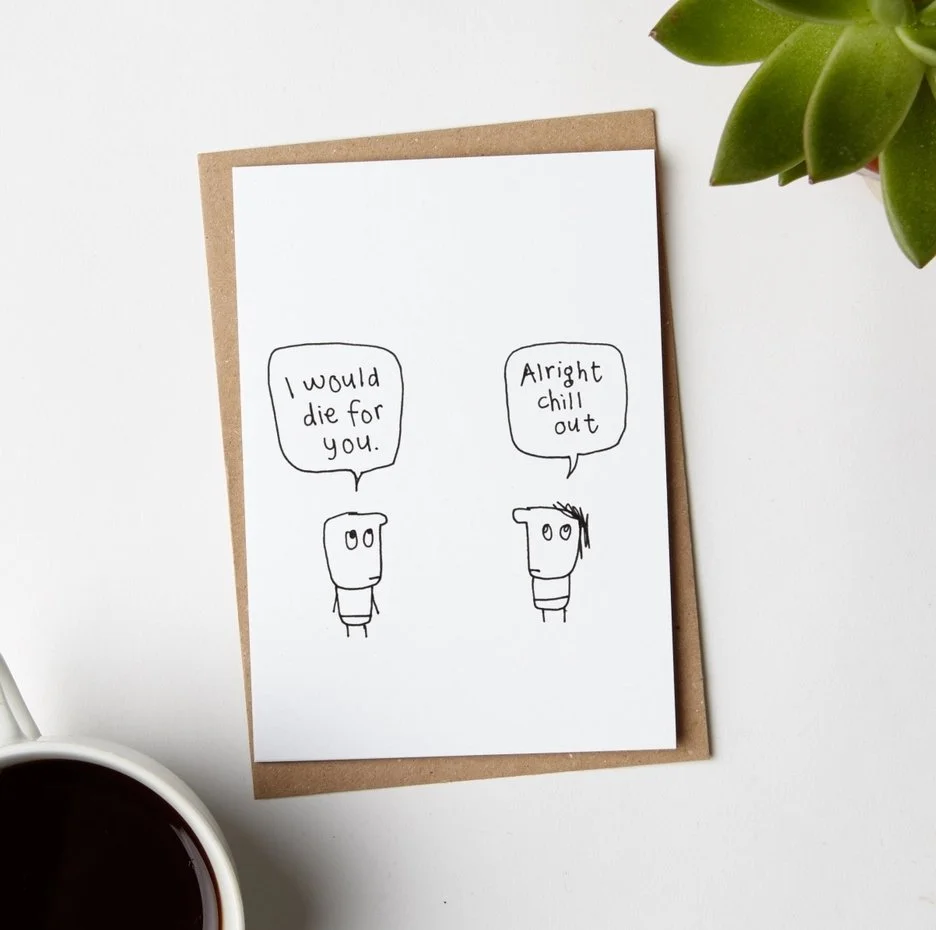 I would
die for
you.
Alright
chill
out